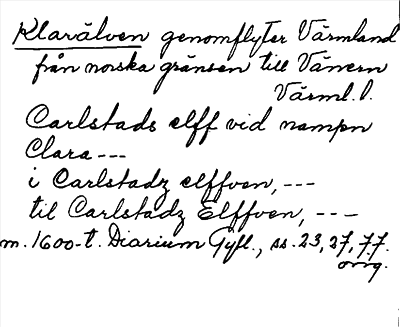 Klarälven genomflyter Värmland
från norska gränsen till Vänern
Värml. l.
Carlstads elff vid nampn
Clara---
i Carlstadz elffven, ---
til Carlstadz Elffven, ---
m. 1600-t. Diarium Gyll., ss. 23, 27, 77.
orig.